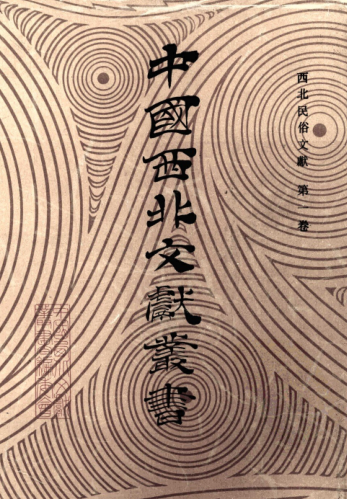 西北民俗文獻 第 卷
中國西北文獻叢書